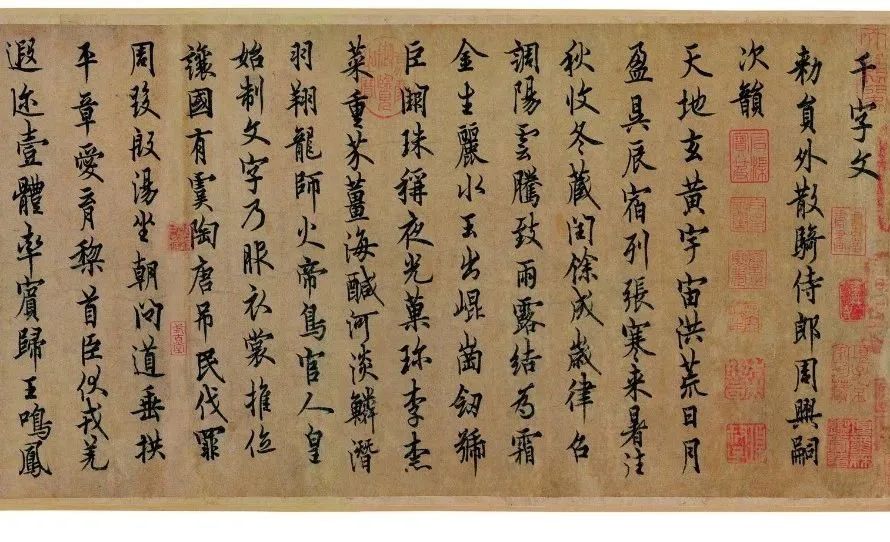 千字文
勑員外散騎侍郎周興嗣
次韻
天地玄黃宇宙洪荒日月
盈昃辰宿列張寒来暑往
秋收冬藏閏餘成歲律召
調陽雲騰致雨露結為霜
金生麗水玉出崐崗劒號
巨闕珠稱夜光菓珎李柰
菜重芥薑海鹹河淡鱗潛
羽翔龍師火帝鳥官人皇
始制文字乃服衣裳推位
讓國有虞陶唐吊民伐罪
周發殷湯坐朝問道垂拱
平章愛育黎首臣伏戎羌
遐迩壹體率賓歸王鳴鳳